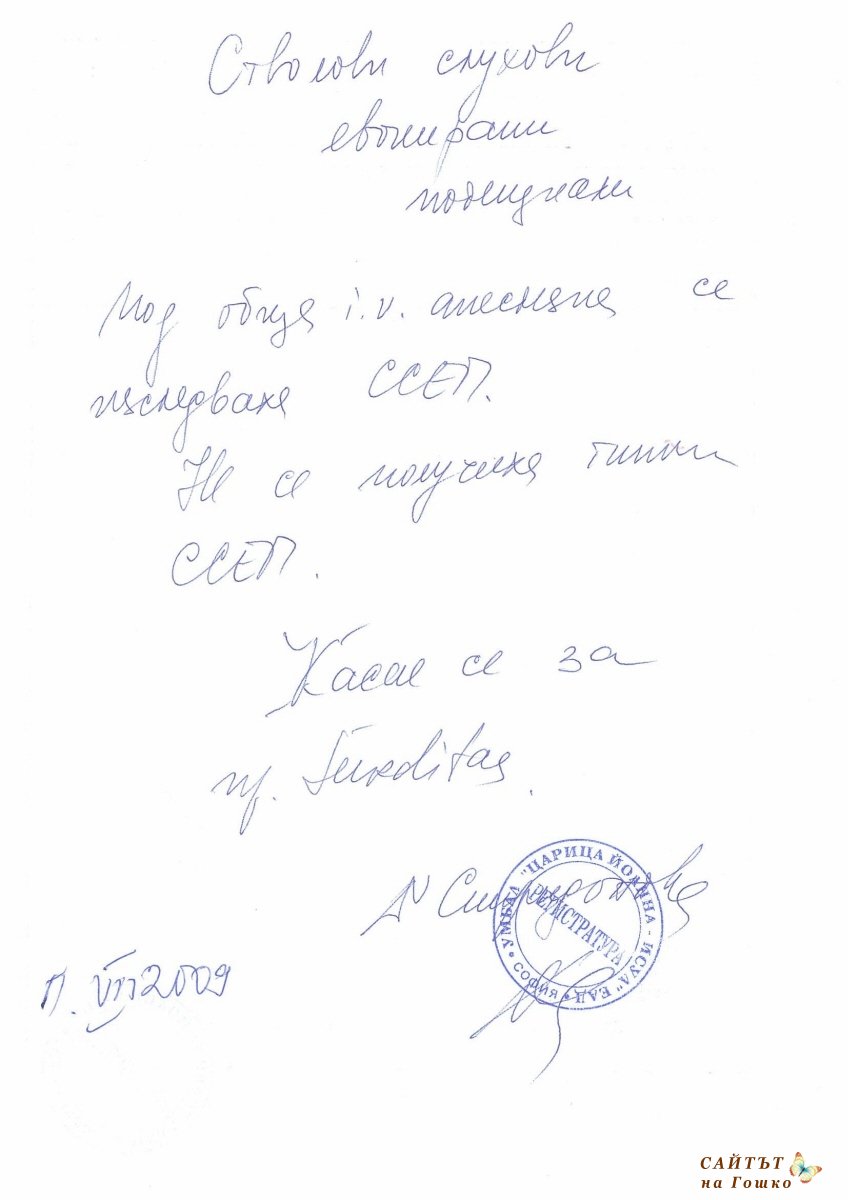 Стволови слухови
евокирани
потенциали
Под обща i.v. анестезия се
изследваха ССЕП.
Не се получиха типични
ССЕП.
Касае се за
Surditas
УМБАЛ "ЦАРИЦА ЙОАННА - ИСУЛ" ЕАД • СОФИЯ •
РЕГИСТРАТУРА
2009
САЙТЪТ
на Гошко